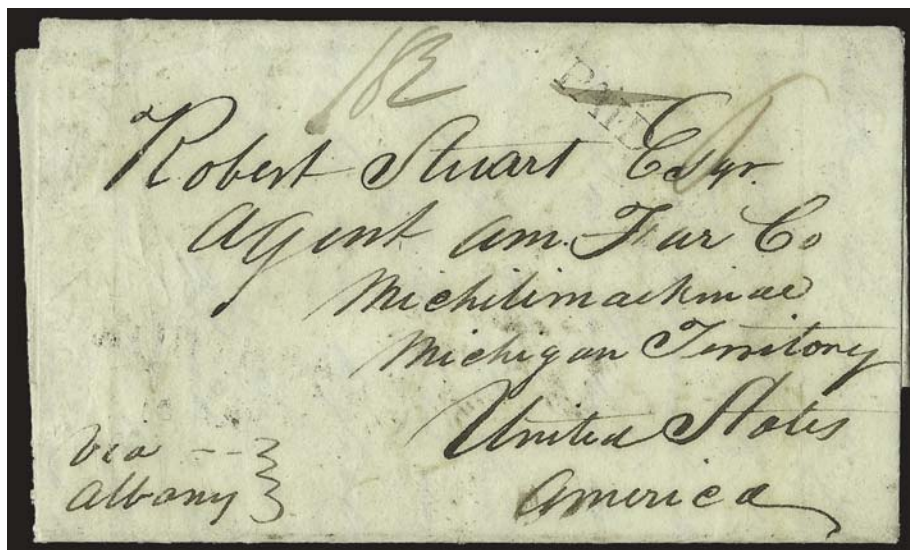 PAID
Robert Stuart Esqr.
Agent Am. Fur Co
Michilimackinac
Michigan Territory
United States
America
Via
Albany